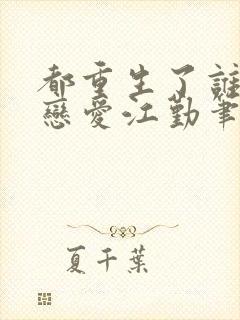 都重生了誰
戀愛江勤筆
夏千葉